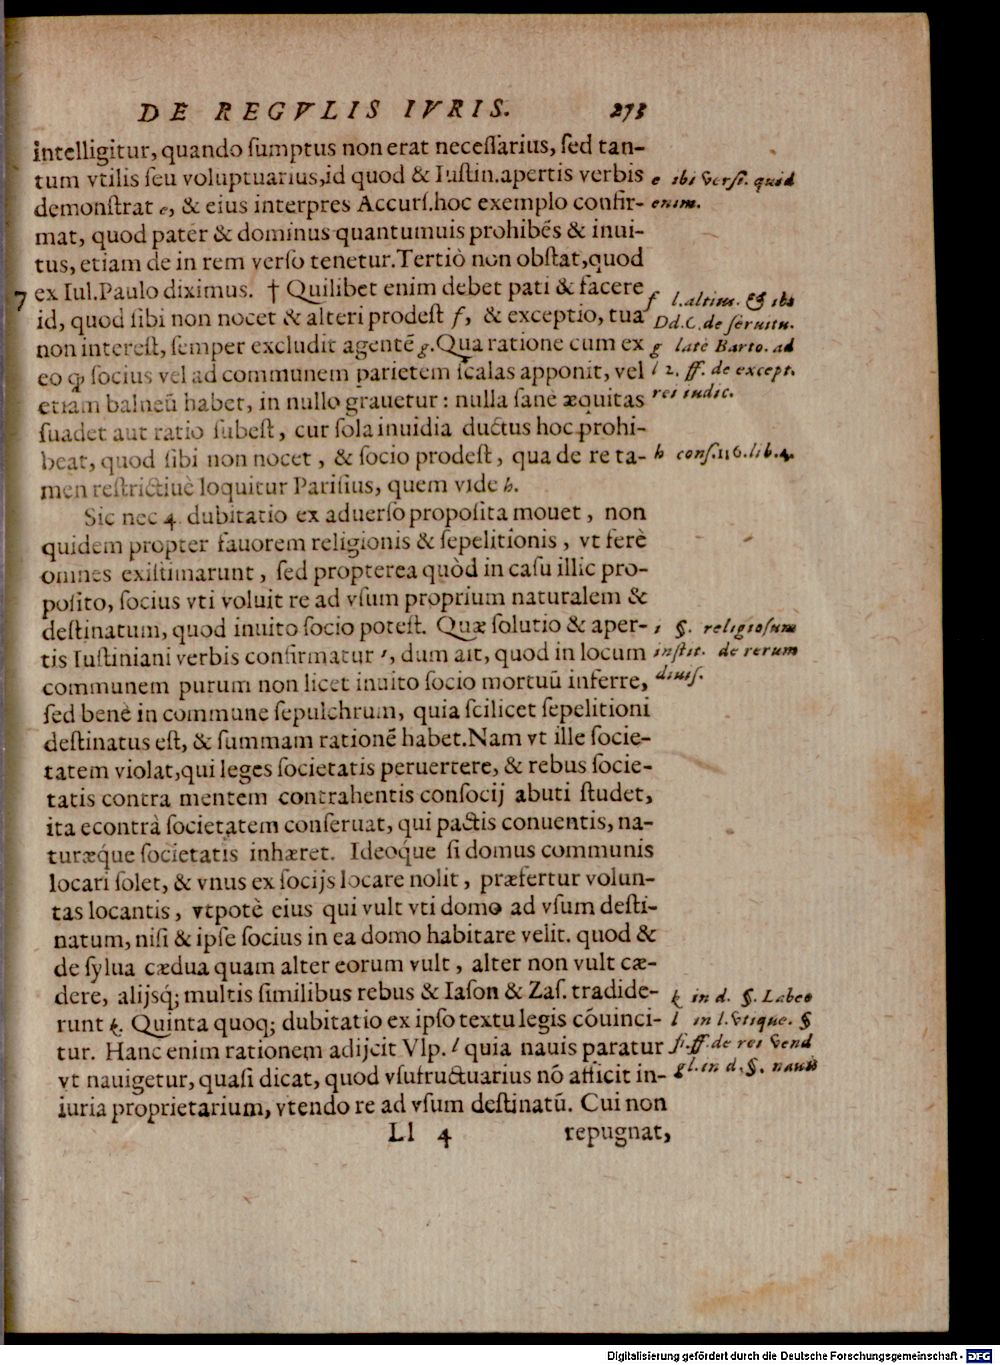 DE REGVLIS IVRIS. 273
intelligitur, quando ſumptus non erat neceſſarius, ſed tan-
tum vtilis ſeu voluptuarius, id quod & Iuſtin. apertis verbis
demonſtrat e, & eius interpres Accurſ. hoc exemplo confir-
mat, quod pater & dominus quantumuis prohibẽs & inui-
tus, etiam de in rem verſo tenetur. Tertiò non obſtat, quod
7 ex Iul. Paulo diximus. † Quilibet enim debet pati & facere
id, quod ſibi non nocet & alteri prodeſt f, & exceptio, tua
non intereſt, ſemper excludit agentẽ g. Qua ratione cum ex
eo ꝙ ſocius vel ad communem parietem ſcalas apponit, vel
etiam balneũ habet, in nullo grauetur: nulla ſanè æquitas
ſuadet aut ratio ſubeſt, cur ſola inuidia ductus hoc prohi-
beat, quod ſibi non nocet, & ſocio prodeſt, qua de re ta-
men reſtrictiuè loquitur Pariſius, quem vide h.
Sic nec 4. dubitatio ex aduerſo propoſita mouet, non
quidem propter fauorem religionis & ſepelitionis, vt ferè
omnes exiſtimarunt, ſed propterea quòd in caſu illic pro-
poſito, ſocius vti voluit re ad vſum proprium naturalem &
deſtinatum, quod inuito ſocio poteſt. Quæ ſolutio & aper-
tis Iuſtiniani verbis confirmatur i, dum ait, quod in locum
communem purum non licet inuito ſocio mortuũ inferre,
ſed benè in commune ſepulchrum, quia ſcilicet ſepelitioni
deſtinatus eſt, & ſummam rationẽ habet. Nam vt ille ſocie-
tatem violat, qui leges ſocietatis peruertere, & rebus ſocie-
tatis contra mentem contrahentis conſocij abuti ſtudet,
ita econtrà ſocietatem conſeruat, qui pactis conuentis, na-
turæq́ue ſocietatis inhæret. Ideoque ſi domus communis
locari ſolet, & vnus ex ſocijs locare nolit, præfertur volun-
tas locantis, vtpotè eius qui vult vti domo ad vſum deſti-
natum, niſi & ipſe ſocius in ea domo habitare velit. quod &
de ſylua cædua quam alter eorum vult, alter non vult cæ-
dere, alijsq́; multis ſimilibus rebus & Iaſon & Zaſ. tradide-
runt k. Quinta quoq; dubitatio ex ipſo textu legis cõuinci-
tur. Hanc enim rationem adijcit Vlp. l quia nauis paratur
vt nauigetur, quaſi dicat, quod vſufructuarius nõ afficit in-
iuria proprietarium, vtendo re ad vſum deſtinatũ. Cui non
Ll 4 repugnat,
e ibi verſ. quid
enim.
f l. altius. & ibi
Dd. C. de ſeruitu.
g latè Barto. ad
l 2. ff. de except.
rei iudic.
h conſ. 116. lib. 4.
i §. religioſum
inſtit. de rerum
diuiſ.
k in d. §. Labeo
l in l. vtique. §
ſi. ff. de rei vend
gl. in d. §. nauis